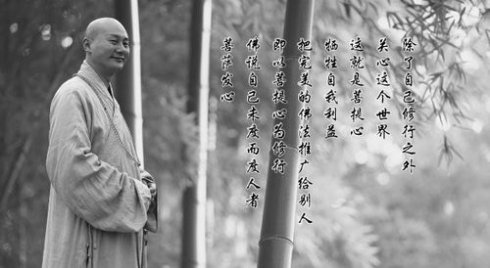 除了自己修行之外
关心这个世界
这就是菩提心
牺牲自我利益
把完美的佛法推广给别人
即以菩提心为修行
佛说自己未度而度人者
菩萨发心